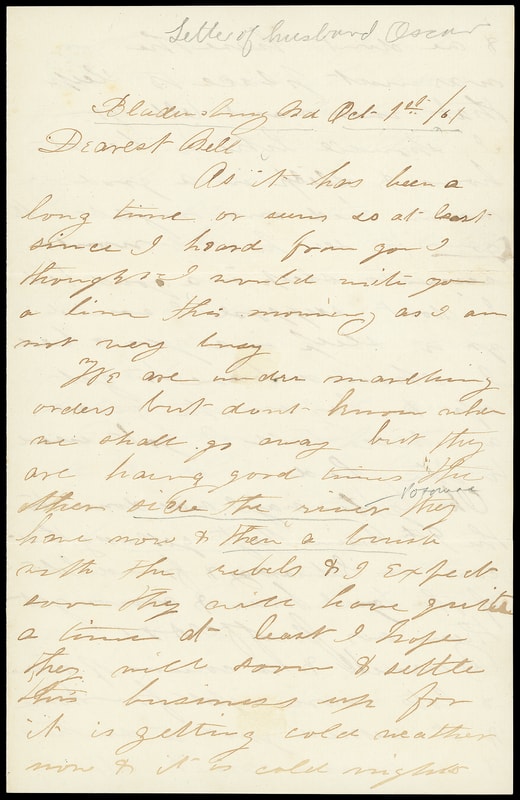 Letter of husband Oscar
Bladensburg Md Oct 1st /61
Dearest Bell
As it has been a
long time or seems so at least
since I heard from you I
thought I would write you
a line this morning as I am
not very busy
We are under marching
orders but dont know when
we shall go away but they
are having good times the
other side the river they
Potomac
have now & then a brush
with the rebels & I expect
soon they will have quite
a time at least I hope
they will soon & settle
this business up for
it is getting cold weather
now & it is cold nights